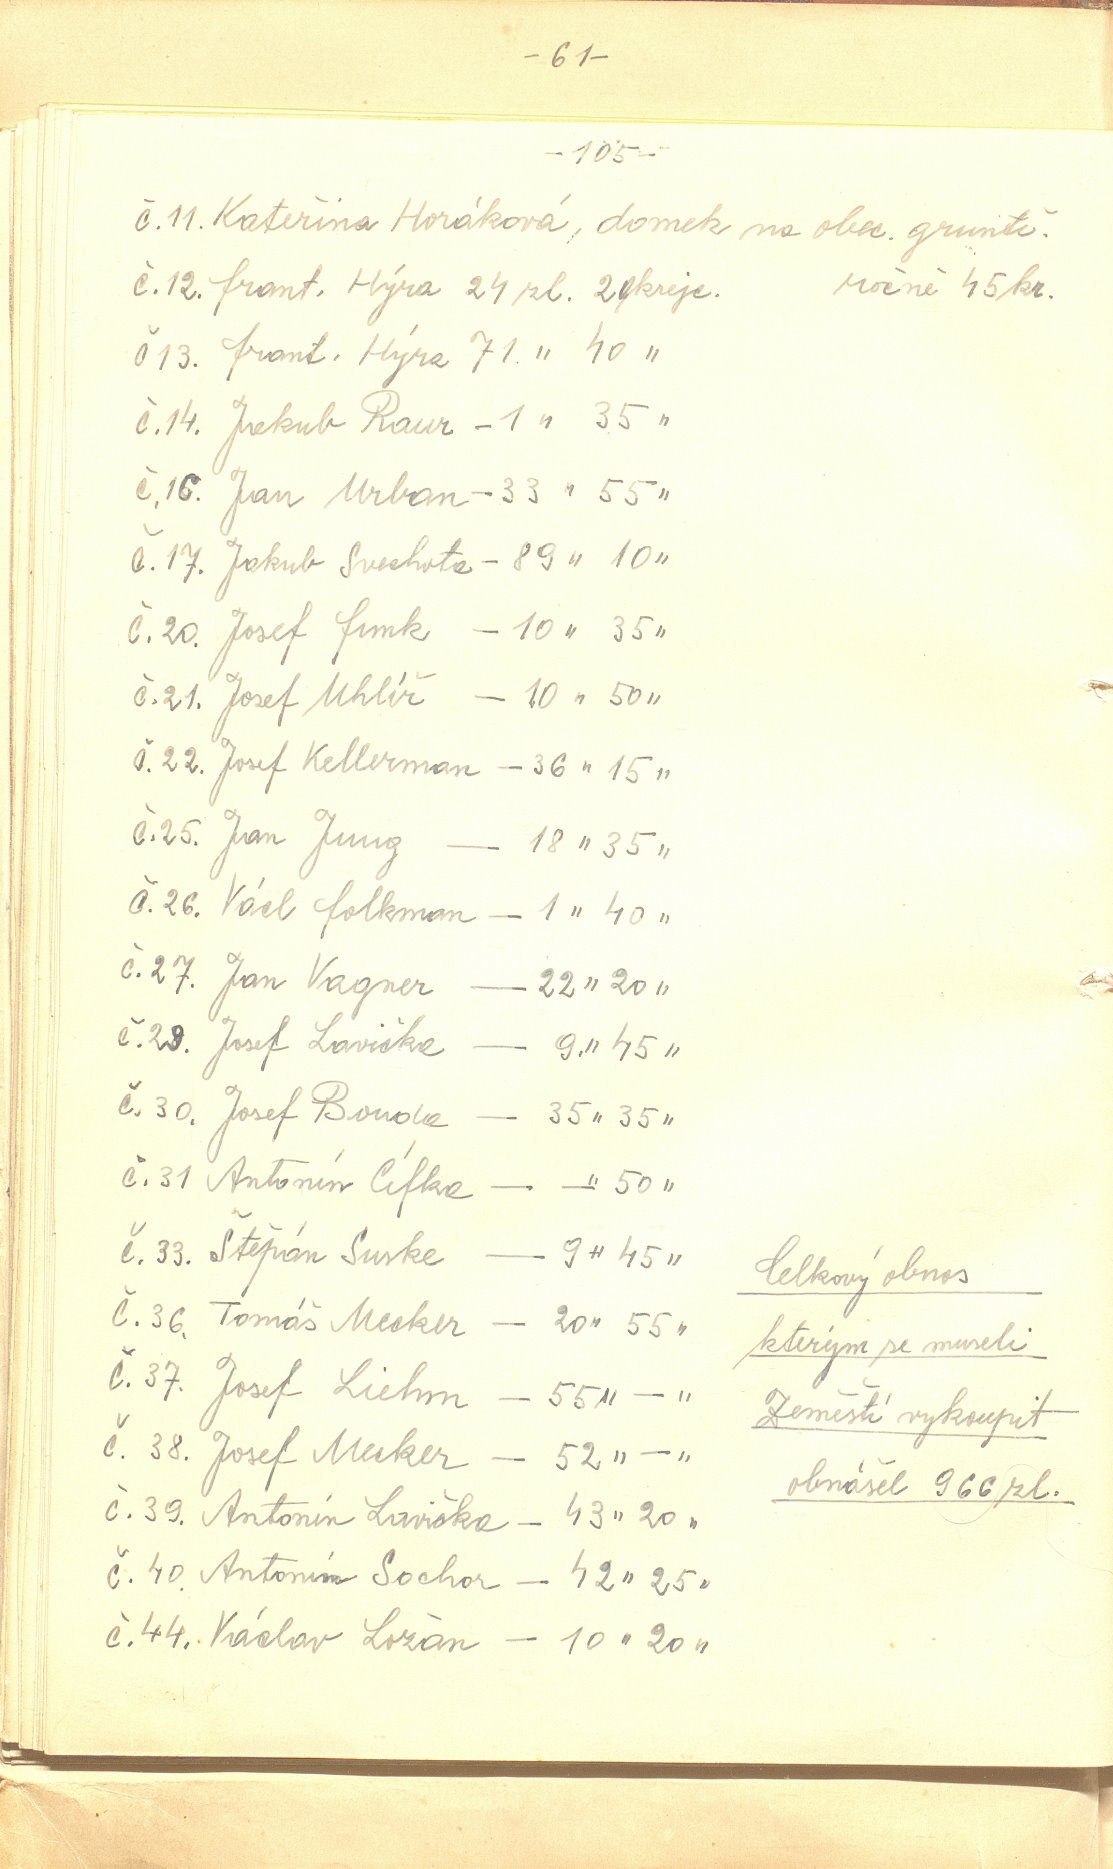 -61-
-105-
č.11. Kateřina Horáková, domek na obec. gruntě.
č.12. frant. Hýra 24 zl. 20 krejc. ročně 45 kr.
č 13. frant. Hýra 71. " 40 "
č.14. Jakub Raur - 1 " 35 "
č.16. Jan Urban - 33 " 55 "
č.17. Jakub Svechota - 89 " 10 "
č.20. Josef funk - 10 " 35 "
č.21. Josef Uhlíř - 10 " 50 "
č.22. Josef Kellerman - 36 " 15 "
č.25. Jan Jung — 18 " 35 "
č.26. Václ folkman - 1 " 40 "
č.27. Jan Vagner — 22 " 20 "
č.29. Josef Lavička — 9." 45 "
č.30. Josef Bouda — 35 " 35 "
č.31 Antonín Cífka — - " 50 "
č.33. Štěpán Suske — 9 " 45 "
č.36. Tomáš Mecker — 20 " 55 "
č.37. Josef Liehm — 55 " — "
č. 38. Josef Mecker — 52 " — "
č.39. Antonín Lavička — 43 " 20 "
č.40. Antonín Sochor — 42 " 25 "
č.44. VáclavLožan — 10 " 20 "
Celkový obnos
kterým se museli
Zeměští vykoupit
obnášel 966 zl.